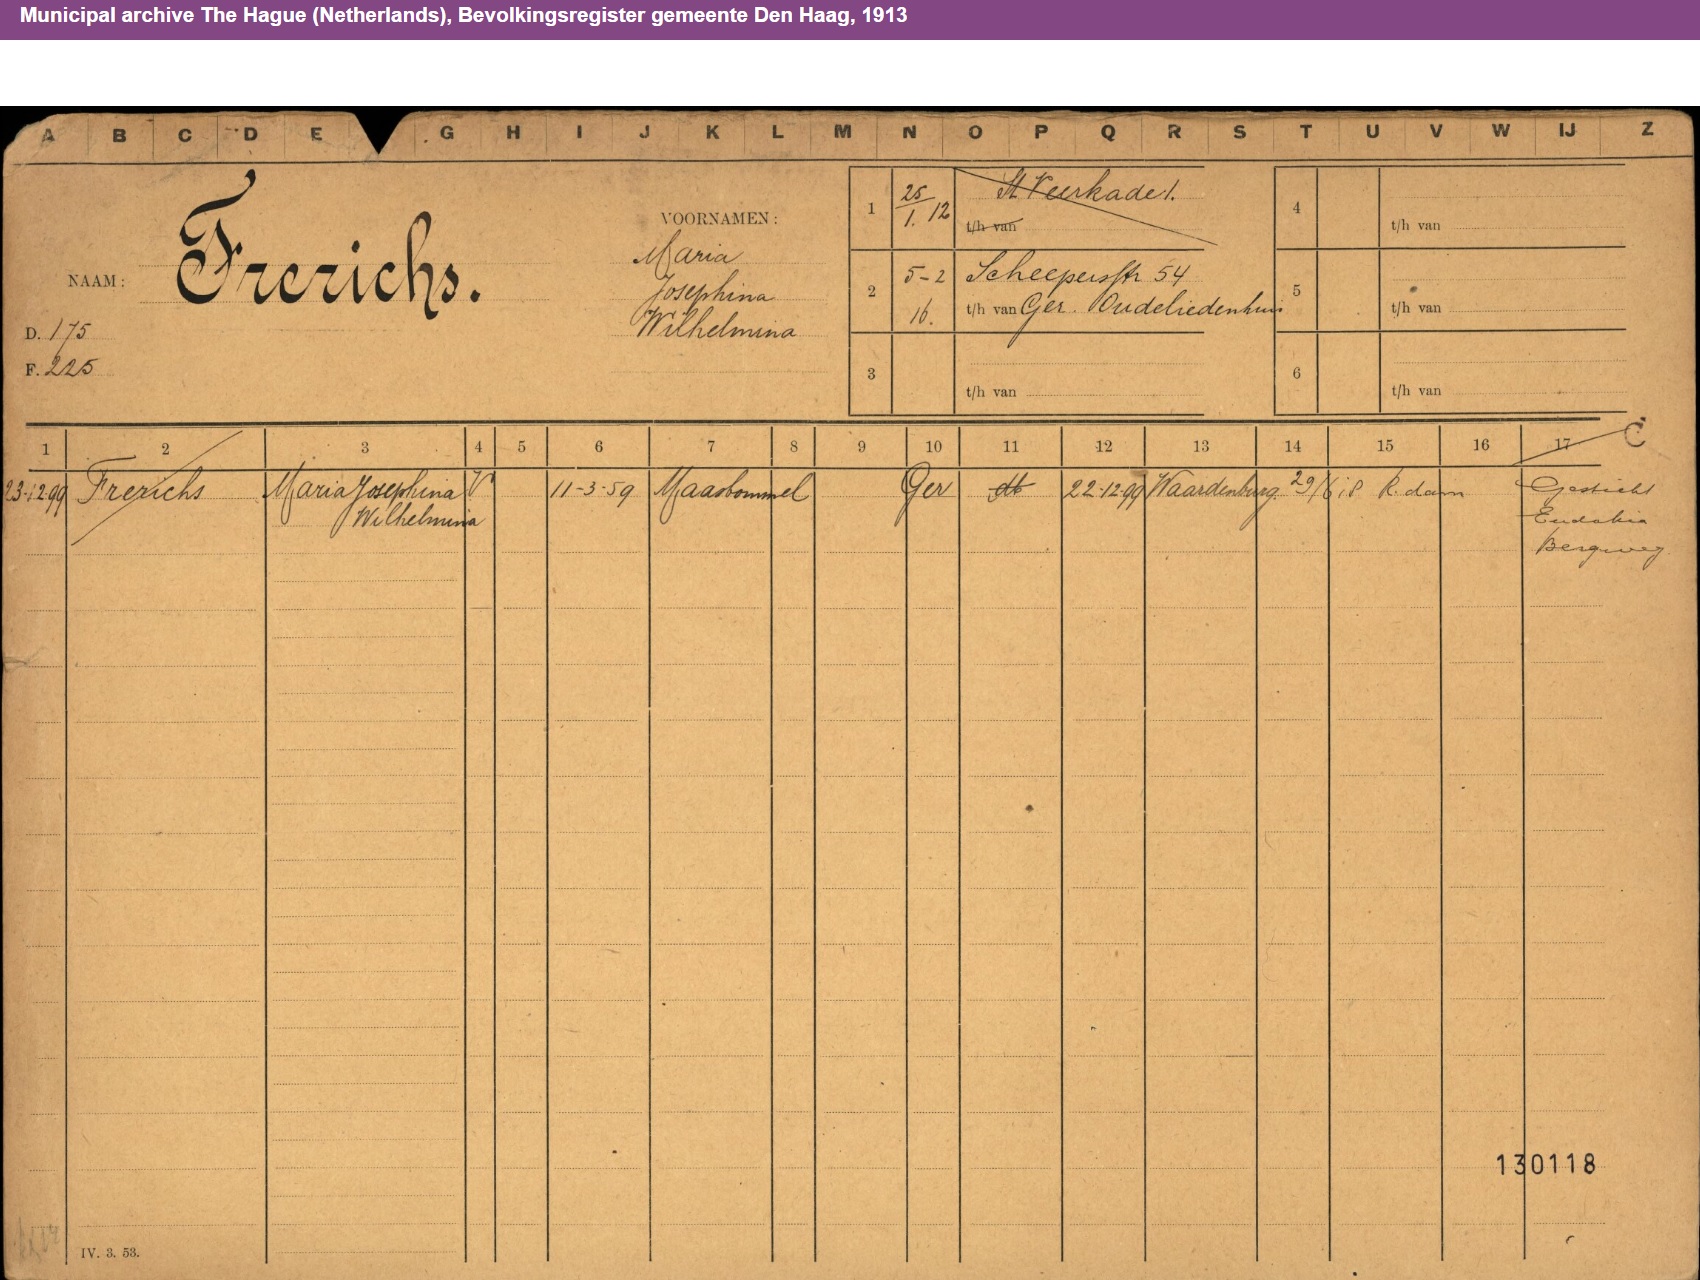 Municipal archive The Hague (Netherlands), Bevolkingsregister gemeente Den Haag, 1913
A B C D E G H I J K L M N O P Q R S T U V W IJ Z
NAAM: Frerichs.
D. 175
F. 225
VOORNAMEN:
Maria
Josephina
Wilhelmina
1 25/1. 12 St Veerkade 1.
t/h van
2 5-2 16. Scheepersstr 54
t/h van Ger. Oudeliedenhuis
3
t/h van
4
t/h van
5
t/h van
6
t/h van
C
1 2 3 4 5 6 7 8 9 10 11 12 13 14 15 16 17
23-12-99 Frerichs Maria Josephina V 11-3-59 Maasbommel Ger 22-12-99 Waardenburg 29/6 18 R.dam Gesticht
Wilhelmina Eudokia
Bergweg
130118
IV. 3. 53.